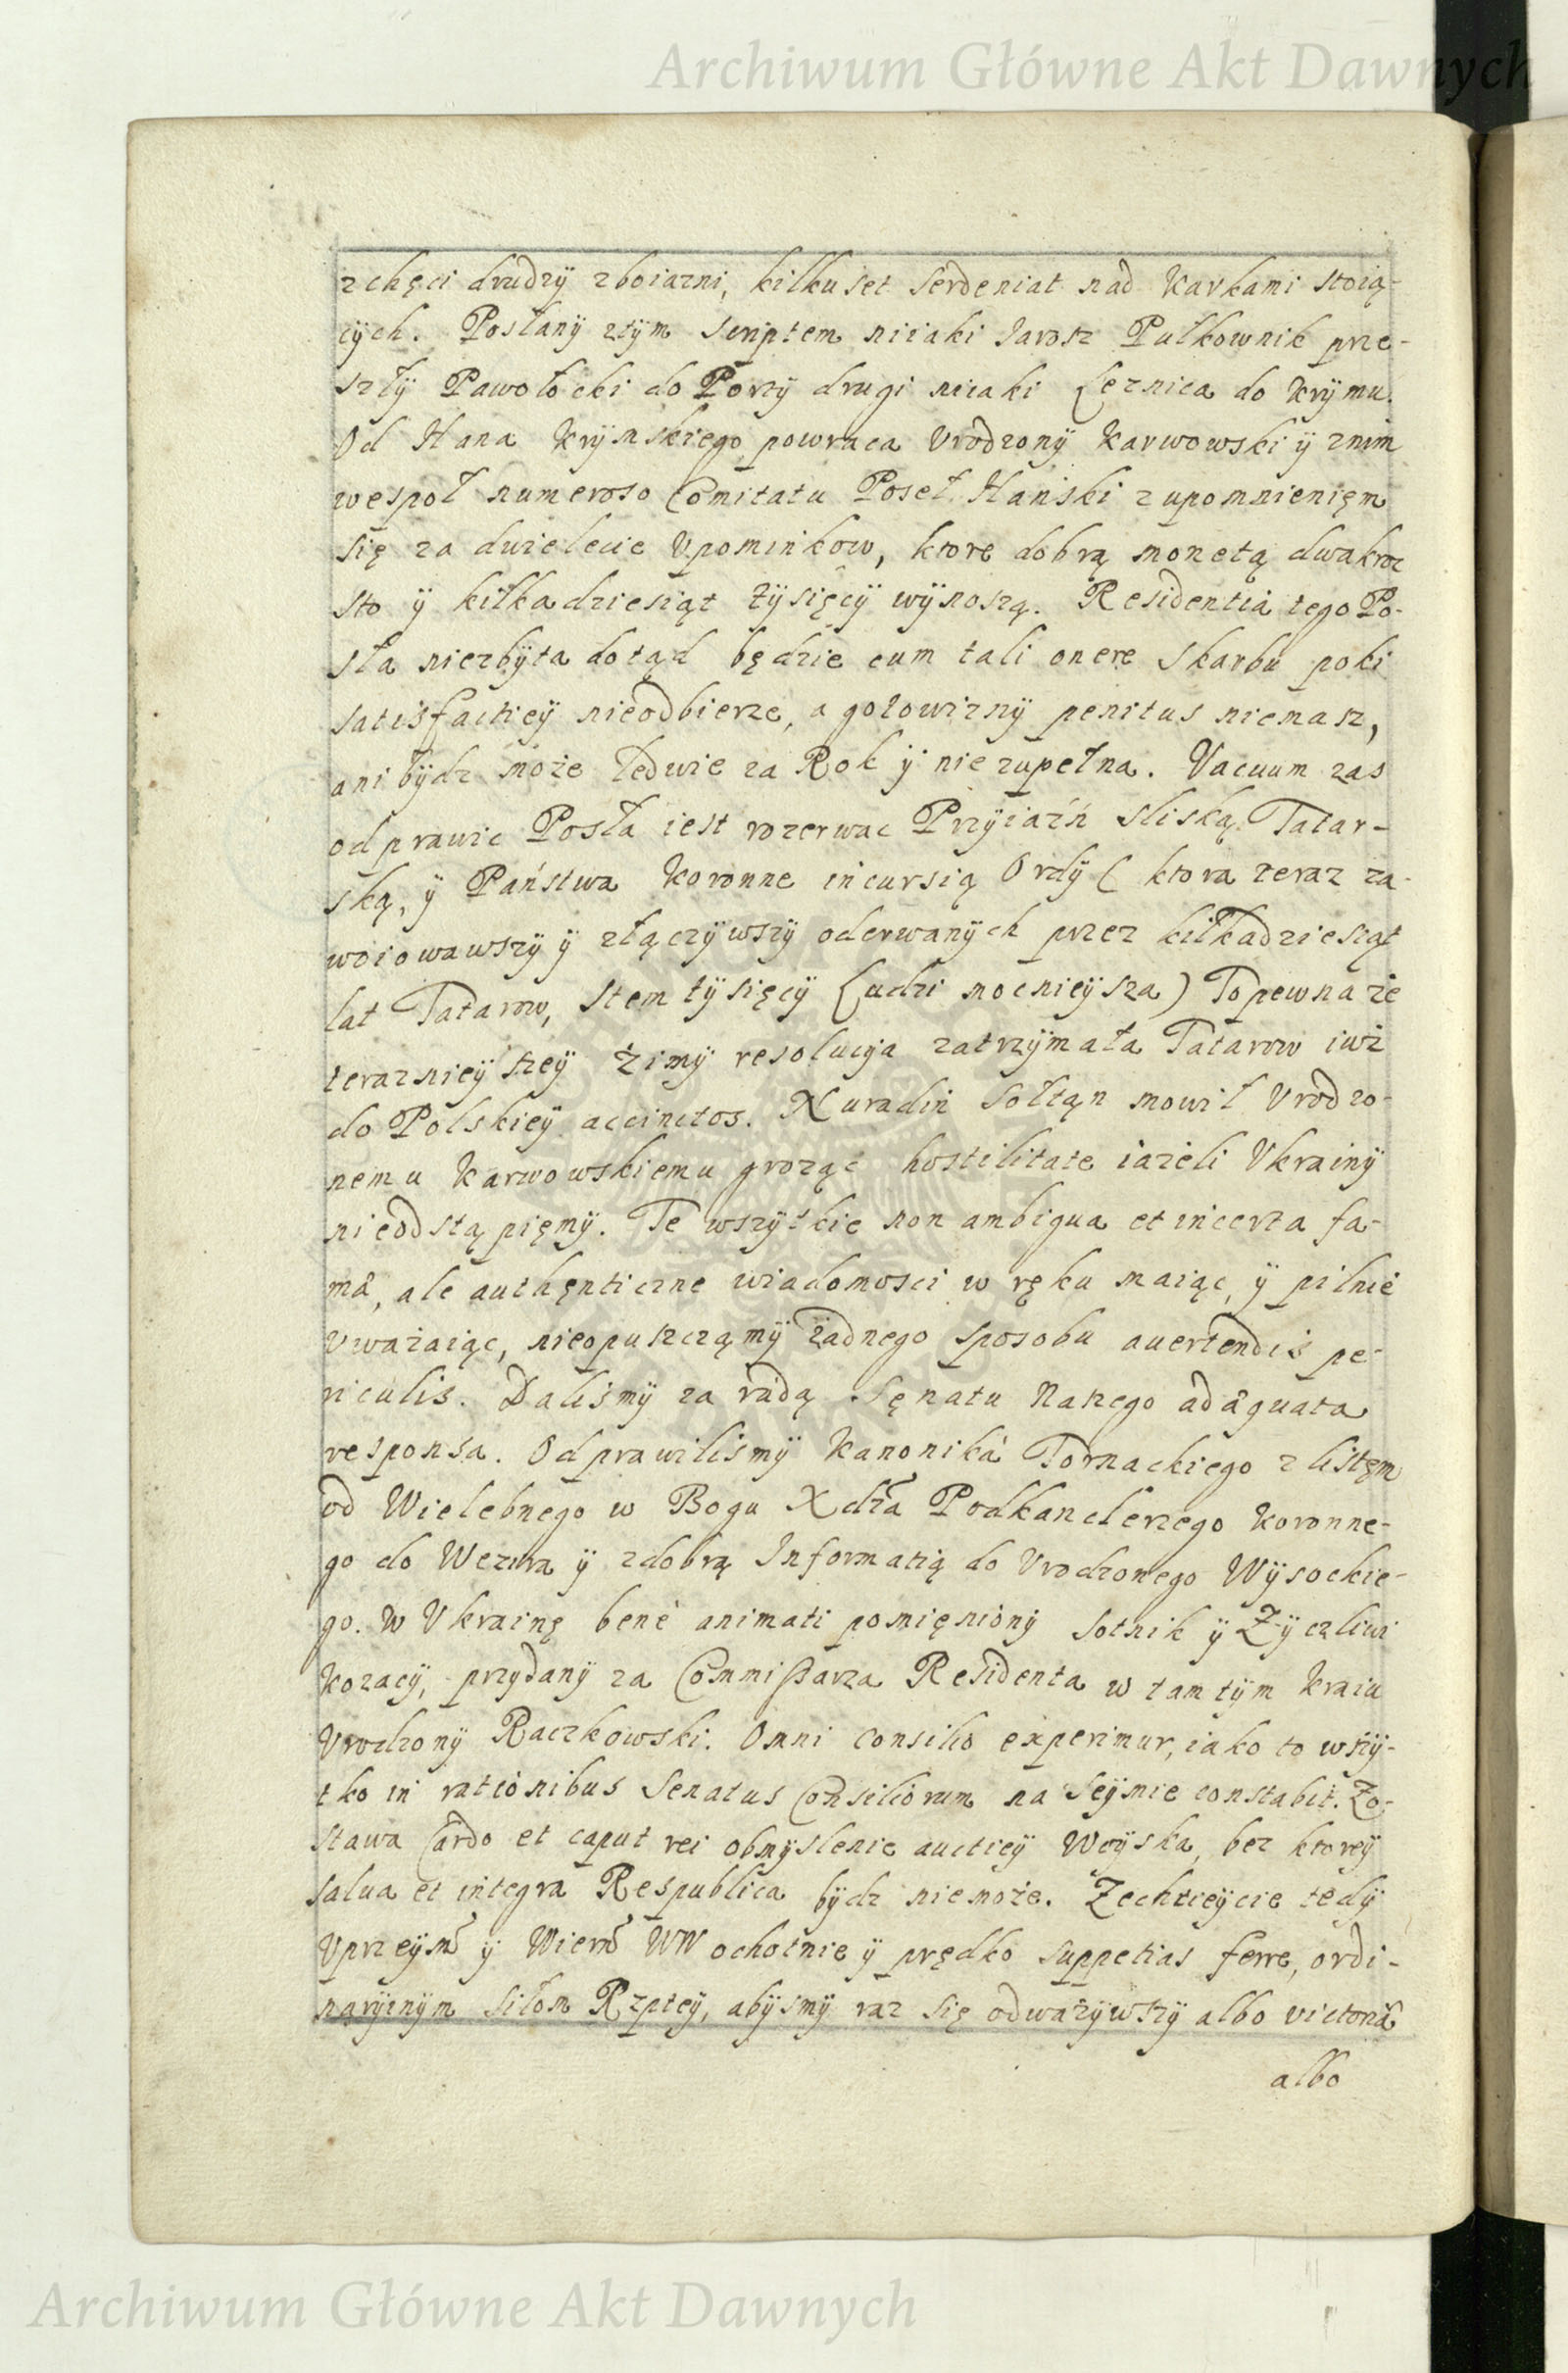 Archiwum Główne Akt Dawnych
z chęci drudzÿ zboiazni, kilkuset Serdeniat nad Karkami stoią-
cÿch. Posłanÿ ztÿm scriptem niiaki Jarosz Pułkownik prze-
szłÿ Pawołocki do Portÿ drugi niiaki Łęznica do Krÿmu.
Od Hana Krÿmskiego powraca Vrodzonÿ Karwowski ÿ znim
wespoł numeroso Comitatu Poseł Hański z upomnienięm
się za dwielecie Vpominkow, ktore dobrą monetą dwakroc
sto ÿ kilkadziesiąt tÿsięcÿ wÿnoszą. Residentia tego Po-
sła niezbÿta dotąd będzie cum tali onere Skarbu poki
satisfactieÿ nieodbierze, a gotowiznÿ penitus niemasz,
ani bÿdz może ledwie za Rok ÿ nie zupełna. Vacuum zas
odprawic Posła iest rozerwac Przÿiaźń sliską Tatar-
ską, ÿ Państwa Koronne incursią Ordÿ ( ktora teraz za-
woiowawszÿ ÿ złączÿwszÿ oderwanÿch przez kilkadziesiąt
lat Tatarow, stem tÿsięcÿ Ludzi mocnieÿsza) To pewna że
teraznieÿszeÿ zimÿ resolucÿa zatrzÿmała Tatarow iuż
do Polskieÿ accinctos. Nuradin Sołtąn mowił Vrodzo-
nemu Karwowskiemu grożąc hostilitate ieżeli Vkrainÿ
nieodstąpięmÿ. Te wszÿtkie non ambigua et incerta fa-
mâ, ale authęnticzne wiadomosci w ręku maiąc, ÿ pilnie
vważaiąc, nieopuszcząmÿ żadnego sposobu auertendis pe-
riculis. Dalismÿ za radą Sęnatu Naszego adæquata
responsa. Odprawilismÿ Kanonika Tornackiego z listęm
od Wielebnego w Bogu Xdza Podkanclerzego Koronne-
go do Wezira ÿ zdobrą Informatią do Vrodzonego Wÿsockie-
go. w Vkrainę benè animati pomięnionÿ Sotnik ÿ Zÿczliwi
Kozacÿ, przydanÿ za Commissarza Residenta w tamtÿm Kraiu
Vrodzonÿ Raczkowski. Omni consilio experimur, iako to wszÿ-
tko in rationibus Senatus Consiliorum na Seÿmie constabit. Zo-
stawa Cardo et caput rei obmÿslenie auctieÿ Woÿska, bez ktoreÿ
salua et integra Respublica bÿdz niemoże. Zechcieÿcie tedÿ
Vprzeÿm ÿ Wiern WW ochotnie ÿ prędko suppetias ferre, ordi-
narÿinÿm siłom Rzpteÿ, abÿsmÿ raz się odważÿwszÿ albo victoriâ
albo
Archiwum Główne Akt Dawnych